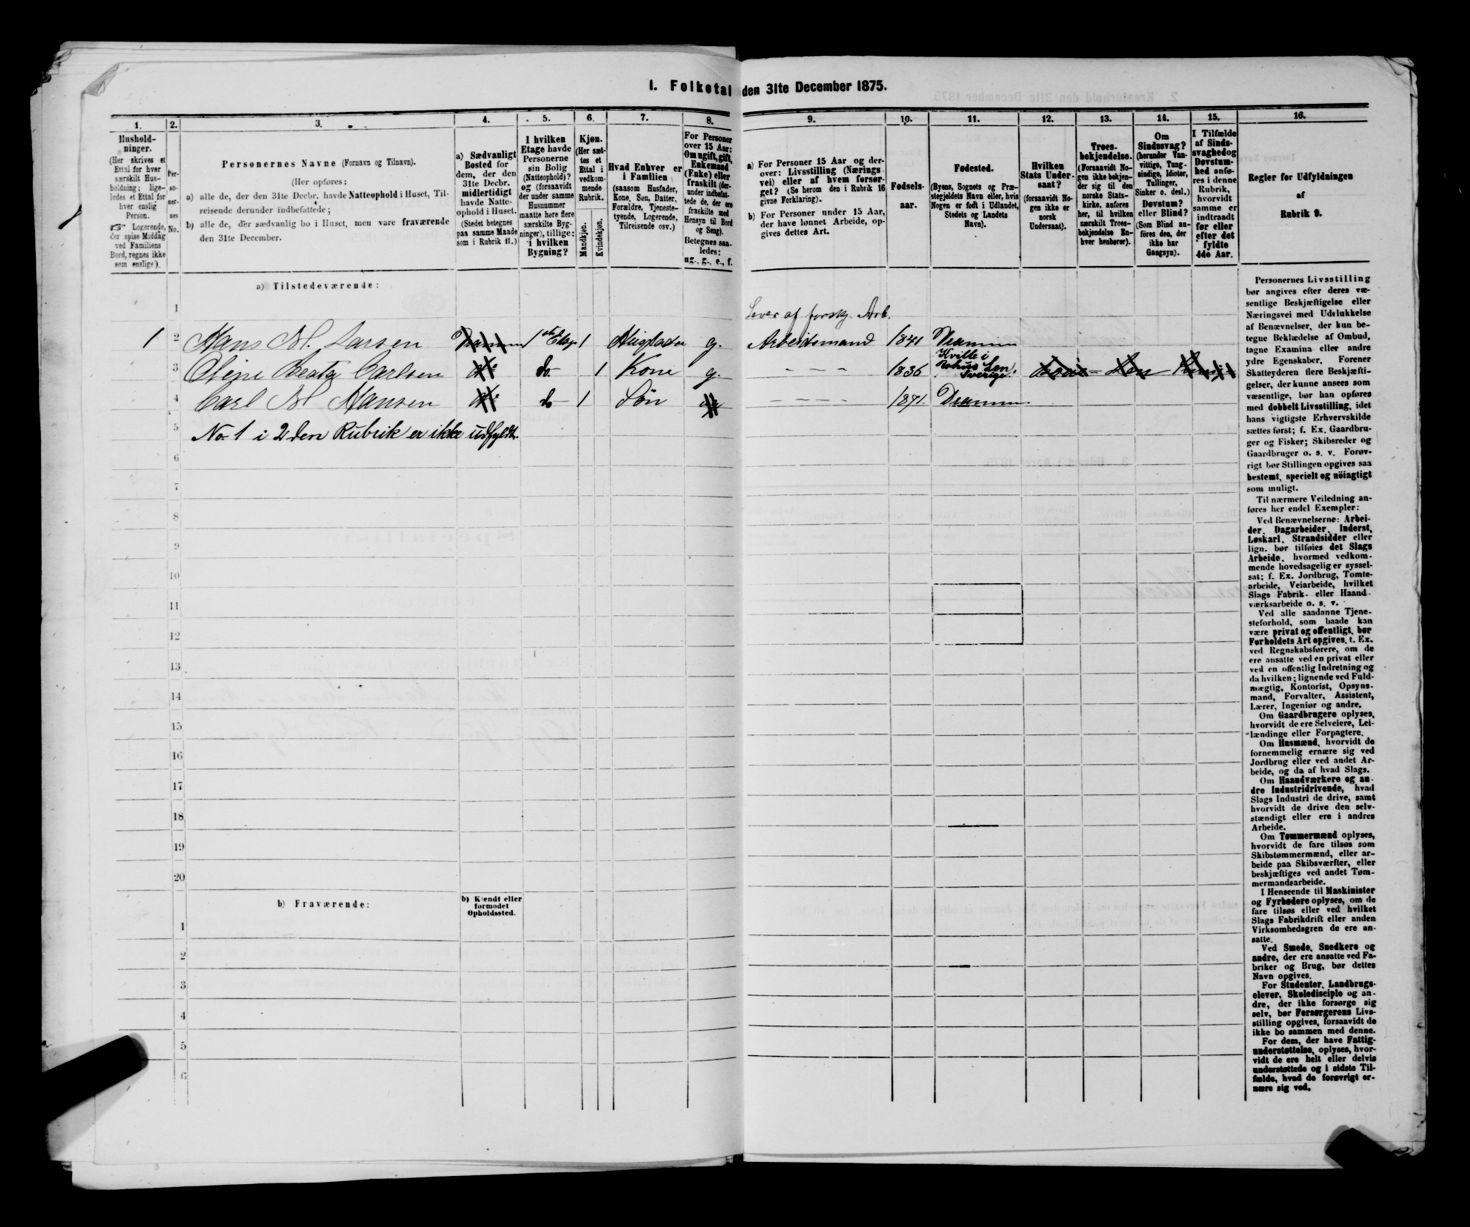 1. Folketal den 31te December 1875.
1.
2.
3.
4.
5.
6.
7.
8.
9.
10.
11.
12.
13.
14.
15.
16.
Hushold-
ninger.
(Her skrives et
Ettal for hver
særskilt Hus-
holdning; lige-
ledes et Ettal for
hver enslig
Person.
Logerende,
der spise Middag
ved Familiens
Bord, regnes ikke
som enslige).
Per-
so-
ner-
nes
No.
Personernes Navne (Fornavn og Tilnavn).
(Her opføres:
a) alle de, der den 31te Decbr. havde Natteophold i Huset, Til-
reisende derunder indbefattede;
b) alle de, der sædvanlig bo i Huset, men vare fraværende
den 31te December.
a) Sædvanligt
Bosted for
dem, der den
31te Decbr.
midlertidigt
havde Natte-
ophold i Huset.
(Stedet betegnes
paa samme Maade
som i Rubrik 11.)
I hvilken
Etage havde
Personerne
sin Bolig
(Natteophold)?
og (forsaavidt
der under samme
Husnummer
maatte høre flere
særskilte Byg-
ninger), tillige:
i hvilken
Bygning?
Kjøn.
(Her sæt-
tes et
Ettal i
vedkom-
mende
Rubrik.
Mandkjøn.
Kvindekjøn.
Hvad Enhver er
i Familien
(saasom Husfader,
Kone, Søn, Datter,
Forældre, Tjeneste-
tyende, Logerende,
Tilreisende osv.)
For Personer
over 15 Aar:
Om ugift, gift,
Enkemand
(Enke) eller
fraskilt (der-
under indbefat-
tede de, der ere
fraskilte med
Hensyn til Bord
og Seng).
Betegnes saa-
ledes:
ug., g., e., f.
a) For Personer 15 Aar og der-
over: Livsstilling (Nærings-
vei) eller af hvem forsør-
get? (Se herom den i Rubrik 16
givne Forklaring).
b) For Personer under 15 Aar,
der have lønnet Arbeide, op-
gives dettes Art.
Fødsels-
aar.
Fødested.
(Byens, Sognets og Præ-
stegjeldets Navn eller, hvis
Nogen er født i Udlandet,
Stedets og Landets
Navn).
Hvilken
Stats Under-
saat?
(forsaavidt No-
gen ikke er
norsk
Undersaat).
Troes-
bekjendelse.
(Forsaavidt No-
gen ikke bekjen-
der sig til den
norske Stats-
kirke, anføres
her, til hvilken
særskilt Troes-
bekjendelse En-
hver henhører).
Om
Sindssvag?
(herunder Van-
vittige, Tung-
sindige, Idioter,
Tullinger,
Sinker o. desl.)
Døvstum?
eller Blind?
(Som Blind an-
føres den, der
ikke har
Gangsyn).
I Tilfælde
af Sinds-
svaghed og
Døvstum-
hed anfø-
res i denne
Rubrik,
hvorvidt
samme er
indtraadt
før eller
efter det
fyldte
4de Aar.
Regler for Udfyldningen
af
Rubrik 9.
a) Tilstedeværende:
1
Lever af forskj. Arb.
1 2 Hans M. Larsen Drammen 1ste Etage 1 Husfader g. Arbeidsmand 1841 Drammen
3 Oline Beata Carlsen do do 1 Kone g. - - - 1836 Kville i
Bohus Len.
Sverige.
4 Carl M. Hansen do do 1 Søn ug - - - - 1871. Drammen
5 No 1 i 2den Rubrik er ikke udfyldt.
6
7
8
9
10
11
12
13
14
15
16
17
18
19
20
b) Fraværende:
b) Kjendt eller
formodet
Opholdssted.
1
2
3
4
5
6
Personernes Livsstilling
bør angives efter deres væ-
sentlige Beskjæftigelse eller
Næringsvei med Udelukkelse
af Benævnelser, der kun be-
tegne Beklædelse af Ombud,
tagne Examina eller andre
ydre Egenskaber. Forener
Skatteyderen flere Beskjæfti-
gelser, der kunne ansees som
væsentlige, bør han opføres
med dobbelt Livsstilling, idet
hans vigtigste Erhvervskilde
sættes først; f. Ex. Gaardbru-
ger og Fisker; Skibsreder og
Gaardbruger o. s. v. Forøv-
rigt bør Stillingen opgives saa
bestemt, specielt og nøiagtigt
som muligt.
Til nærmere Veiledning an-
føres her endel Exempler:
Ved Benævnelserne: Arbei-
der, Dagarbeider, Inderst,
Løskarl, Strandsidder eller
lign. bør tilføies det Slags
Arbeide, hvormed vedkom-
mende hovedsagelig er syssel-
sat; f. Ex. Jordbrug, Tomte-
arbeide, Veiarbeide, hvilket
Slags Fabrik- eller Haand-
værksarbeide o. s. v.
Ved alle saadanne Tjene-
steforhold, som baade kan
være privat og offentligt, bør
Forholdets Art opgives, t. Ex.
ved Regnskabsførere, om de
ere ansatte ved en privat eller
ved en offentlig Indretning og
da hvilken; lignende ved Fuld-
mægtig, Kontorist, Opsyns-
mand, Forvalter, Assistent,
Lærer, Ingeniør og andre.
Om Gaardbrugere oplyses,
hvorvidt de ere Selveiere, Lei-
lændinge eller Forpagtere.
Om Husmænd, hvorvidt de
fornemmelig ernære sig ved
Jordbrug eller ved andet Ar-
beide, og da af hvad Slags.
Om Haandværkere og an-
dre Industridrivende, hvad
Slags Industri de drive, samt
hvorvidt de drive den selv-
stændigt eller ere i andres
Arbeide.
Om Tømmermænd oplyses,
hvorvidt de fare tilsøs som
Skibstømmermænd, eller ar-
beide paa Skibsværfter, eller
beskjæftiges ved andet Tøm-
mermandsarbeide.
I Henseende til Maskinister
og Fyrbødere oplyses, om de
fare tilsøs eller ved hvilket
Slags Fabrikdrift eller anden
Virksomhedsgren de ere an-
satte.
Ved Smede, Snedkere og
andre, der ere ansatte ved Fa-
briker og Brug, bør dettes
Navn opgives.
For Studenter, Landbrugs-
elever, Skoledisciple og an-
dre, der ikke forsørge sig
selv, bør Forsørgerens Livs-
stilling opgives, forsaavidt de
ikke bo sammen med denne.
For dem, der have Fattig-
understøttelse, oplyses, hvor-
vidt de ere helt eller delvis
understøttede og i sidste Til-
fælde, hvad de forøvrigt er-
nære sig ved.